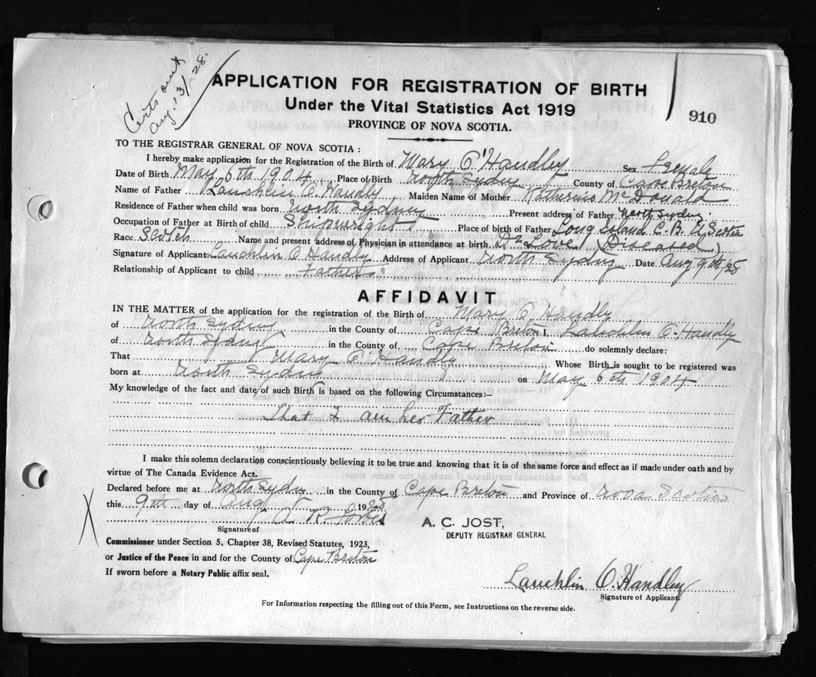 Certs out
Aug. 13/28.
APPLICATION FOR REGISTRATION OF BIRTH
Under the Vital Statistics Act 1919
PROVINCE OF NOVA SCOTIA.
910
TO THE REGISTRAR GENERAL OF NOVA SCOTIA:
I hereby make application for the Registration of the Birth of Mary O'Handley Sex Female
Date of Birth May 6th 1904 Place of Birth North Sydney County of Cape Breton
Name of Father Lauchlin O. Handly Maiden Name of Mother Katherine McDonald
Residence of Father when child was born North Sydney Present address of Father North Sydney
Occupation of Father at Birth of child Shipwright Place of Birth of Father Long island C.B. N. Scotia
Race Scotch Name and present address of Physician in attendance at birth Dr. (Diseased)
Signature of Applicant Lauchlin O Handly Address of Applicant North Sydney Date Aug 9th, 28
Relationship of Applicant to child Father
AFFIDAVIT
IN THE MATTER of the application for the registration of the Birth of Mary O, Handly
of North Sydney in the County of Cape Breton I, Lauchlin O. Handly
of North Sydney in the County of Cape Breton do solemnly declare:
That Mary O'Handly Whose Birth is sought to be registered was
born at North Sydney on May 6th 1904
My knowledge of the fact and date of such Birth is based on the following Circumstances:—
That I am her Father
I make this solemn declaration conscientiously believing it to be true and knowing that it is of the same force and effect as if made under oath and by
virtue of The Canada Evidence Act.
Declared before me at North Sydney in the County of Cape Breton and Province of Nova Scotia
this 9th day of Aug 1928
Signature of
A. C. JOST,
DEPUTY REGISTRAR GENERAL
Commissioner under Section 5, Chapter 38, Revised Statutes, 1923,
or Justice of the Peace in and for the County of Cape Breton
If sworn before a Notary Public affix seal.
Lauchlin O. Handley
Signature of Applicant.
For Information respecting the filling out of this Form, see Instructions on the reverse side.